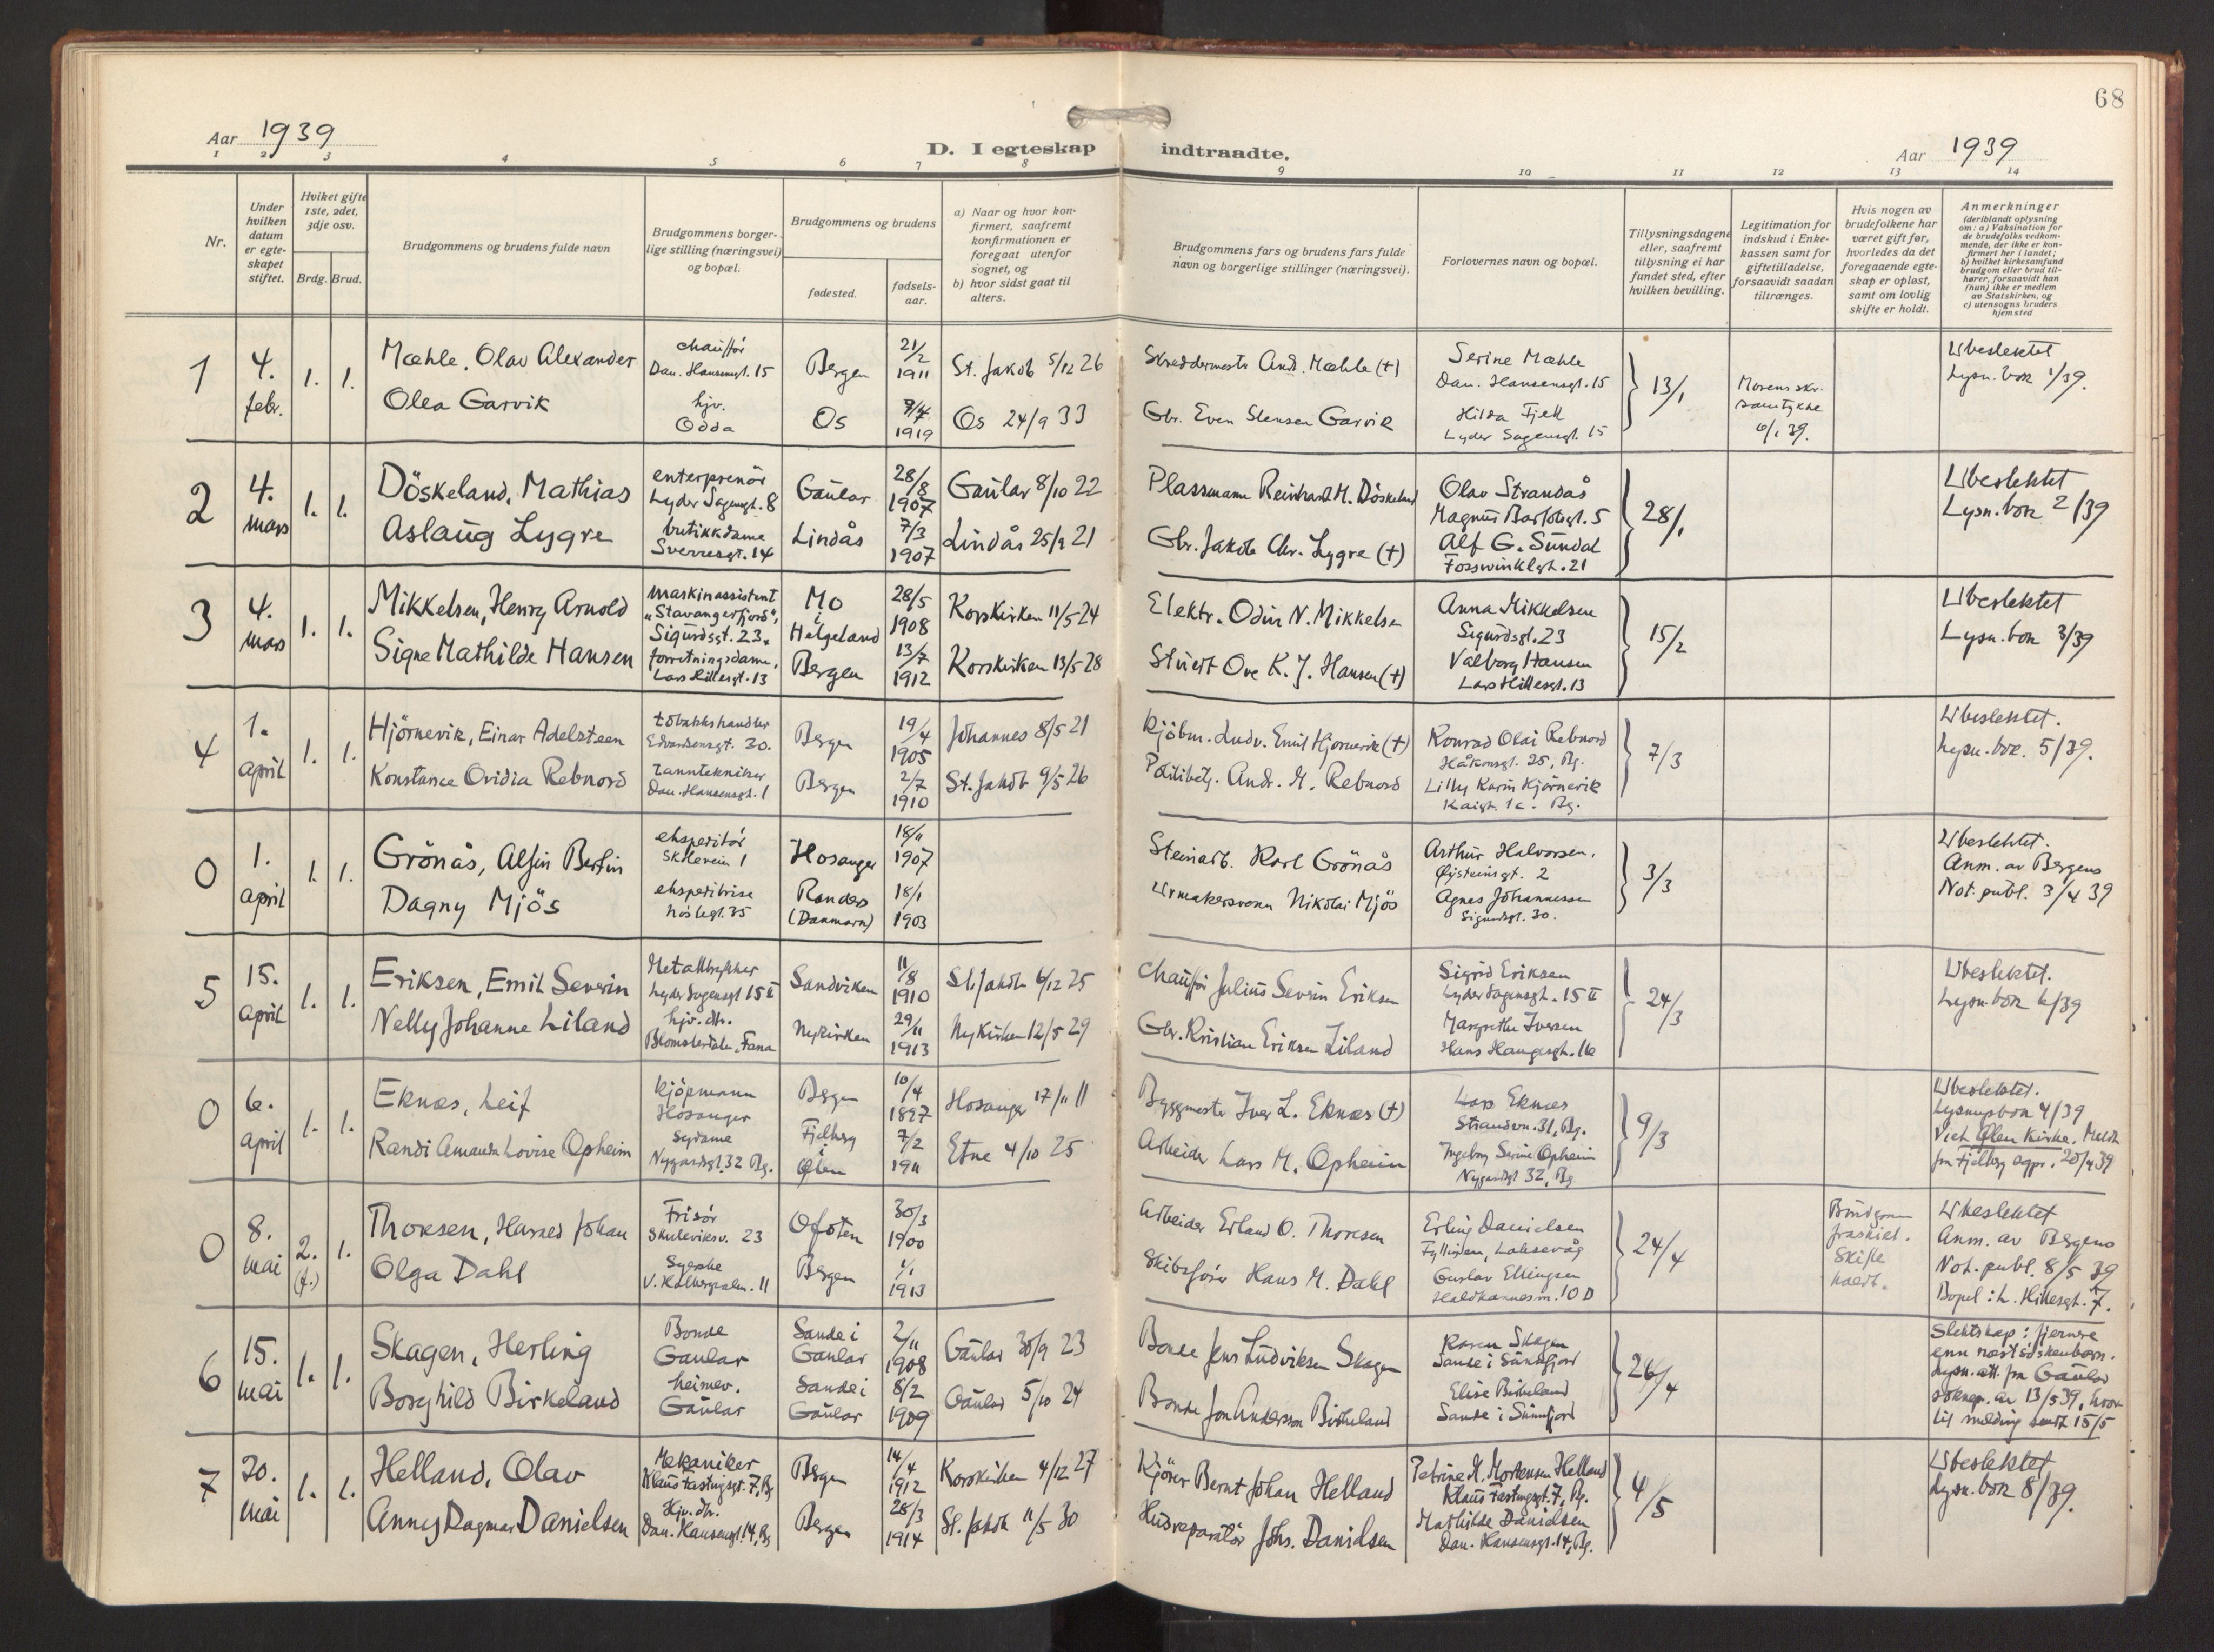 68
Aar 1939
D. I egteskap indtraadte.
Aar 1939
1 2 3 4 5 6 7 8 9 10 11 12 13 14
Nr.
Under hvilken datum er egteskapet stiftet.
Hvilket gifte 1ste, 2det, 3dje osv.
Brdg. Brud.
Brudgommens og brudens fulde navn
Brudgommens borgerlige stilling (næringsvei) og bopæl.
Brudgommens og brudens
fødested.
fødselsaar.
a) Naar og hvor konfirmert, saafremt konfirmationen er foregaat utenfor sognet, og
b) hvor sidst gaat til alters.
Brudgommens fars og brudens fars fulde navn og borgerlige stillinger (næringsvei).
Forlovernes navn og bopæl.
Tillysningsdagene eller, saafremt tillysning ei har fundet sted, efter hvilken bevilling.
Legitimation for indskud i Enkekassen samt for giftetilladelse, forsaavidt saadan tiltrænges.
Hvis nogen av brudefolkene har været gift før, hvorledes da det foregaaende egteskap er opløst, samt om lovlig skifte er holdt.
Anmerkninger
(deriblandt oplysning om: a) Vaksination for de brudefolks vedkommende, der ikke er konfirmert her i landet; b) hvilket kirkesamfund brudgom eller brud tilhører, forsaavidt han (hun) ikke er medlem av Statskirken, og c) utensogns bruders hjemsted
1 4. febr. 1. 1.
Mæhle, Olav Alexander
chauffør
Dan. Hansensgt. 15
Bergen
21/2 1911
St. Jakob 5/12 26
Skreddermester And. Mæhle (+)
Serine Mæhle
Dan. Hansensgt. 15
13/1
Morens skr. samtykke 6/1 39.
Ubeslektet
Lysn. bok 1/39.
Olea Garvik
hjv.
Odda
Os
7/7 1919
Os 24/9 33
Gbr. Even Slensen Garvik
Hilda Fjell
Lyder Sagensgt. 15
2 4. mars 1. 1.
Döskeland, Mathias
enterprenör
Lyder Sagensgt. 8
Gaular
28/8 1907
Gaular 8/10 22
Plassmann Reinhardt M. Döskeland
Olav Strandås
Magnus Barfotsgt. 5
28/1
Ubeslektet
Lysn. bok 2/39
Aslaug Lygre
butikkdame
Sverresgt. 14
Lindås
7/3 1907
Lindås 25/9 21
Gbr. Jakob Chr. Lygre (+)
Alf G. Sundal
Fosswincklsgt. 21
3 4. mars 1. 1.
Mikkelsen, Henry Arnold
maskinassistent
"Stavangerfjord",
Sigurdsgt. 23.
Mo i Helgeland
28/5 1908
Korskirken 11/5 24
Elektr. Odin N. Mikkelsen
Anna Mikkelsen
Sigurdsgt. 23
15/2
Ubeslektet
Lysn. bok 3/39
Signe Mathilde Hansen
forretningsdame,
Lars Hillesgt. 13
Bergen
13/7 1912
Korskirken 13/5 28
Stuert Ove K. J. Hansen (+)
Valborg Hansen
Lars Hillesgt. 13
4 1. april 1. 1.
Hjörnevik, Einar Adelsteen
tobakkshandler
Edvardsensgt. 30.
Bergen
19/4 1905
Johannes 8/5 21
Kjöbm. Ludv. Emil Hjörnevik (+)
Konrad Olai Rebnord
Håkonsgt. 25, Bg.
7/3
Ubeslektet.
Lysn. bok. 5/39.
Konstance Ovidia Rebnord
tanntekniker
Dan. Hansensgt. 1
Bergen
2/7 1910
St. Jakob 9/5 26
Politibetj. Andr. M. Rebnord
Lilly Karin Hjörnevik
Kaigt. 1a. Bg.
0 1. april 1. 1.
Grönås, Alfin Bertin
ekspeditör
Skolevein 1
Hosanger
18/11 1907
Steinarb. Karl Grönås
Arthur Halvorsen,
Øysteinsgt. 2
3/3
Ubeslektet.
Anm. av Bergens
Not. publ. 3/4 39
Dagny Mjös
ekspeditrise
35
Randers
(Danmark)
18/1 1903
Urmakersvenn Nikolai Mjös
Agnes Johannessen
Sigurdsgt. 30.
5 15. april 1. 1.
Eriksen, Emil Severin
Metalltrykker
Lyder Sagensgt 15 II
Sandviken
11/8 1910
St. Jakob 6/12 25
Chauffør Julius Severin Eriksen
Sigrid Eriksen
Lyder Sagensgt. 15 II
24/3
Ubeslektet.
Lysn. bok 6/39
Nelly Johanne Liland
hjv. dtr.
Blomsterdalen, Fana
Nykirken
29/11 1913
Nykirken 12/5 29
Gbr. Kristian Eriksen Liland
Margrethe Iversen
Hans Haugesgt. 16
0 6. april 1. 1.
Eknes, Leif
Kjöpmann
Hosanger
Bergen
10/4 1897
Hosanger 17/11 11
Byggmester Iver L. Eknes (+)
Lars Eknes
Strandvn. 31, Bg.
9/3
Ubeslektet.
Lysningsbok 4/39
Viet Ølen Kirke. Meldt
fra Fjelberg sgpr. 20/4 39
Randi Amanda Lovise Opheim
Sydame
Nygårdsgt. 32 Bg.
Fjelberg
Ølen
7/2 1911
Etne 4/10 25
Arbeider Lars M. Opheim
Ingeborg Serine Opheim
Nygårdsgt 32, Bg
0 8. mai 2. (f.) 1.
Thoresen, Harald Johan
Frisör
Skuteviksv. 23
Ofoten
30/3 1900
Arbeider Erland O. Thoresen
Erling Danielsen
Fyllingen, Laksevåg
24/4
Brudgom fraskilt. Skifte holdt.
Ubeslektet
Anm. av Bergens
Not. publ. 8/5 39
Bopel: L. Hillesgt. 7.
Olga Dahl
Syerske
V. Holbergsalm. 11
Bergen
1/1 1913
Skibsförer Hans M. Dahl
Gustav Ellingsen
10 D
6 15. mai 1. 1.
Skagen, Herling
Bonde
Gaular
Sande i Gaular
2/11 1908
Gaular 30/9 23
Bonde Jens Ludviksen Skagen
Karen Skagen
Sande i Sunnfjord
26/4
Slektskap: fjernere
enn næst söskenbarn.
Lysn. att. fra Gaular
sokn av 13/5 39, hvor-
til melding sendt 15/5
Borghild Birkeland
heimev.
Gaular
Sande i Gaular
8/2 1909
Gaular 5/10 24
Bonde Jon Andersson Birkeland
Elise Birkeland
Sande i Sunnfjord
7 20. mai 1. 1.
Helland, Olav
Mekaniker
Klaus Fastingsgt. 7, Bg
Bergen
14/4 1912
Korskirken 4/12 27
Kjörer Bernt Johan Helland
Petrine M. Mortensen Helland
Klaus Fastingsgt. 7, Bg.
4/5
Ubeslektet
Lysn. bok 8/39.
Anny Dagmar Danielsen
Hjv. dtr.
Dan. Hansensgt. 14, Bg
Bergen
28/3 1914
St. Jakob 11/5 30
Hudreparatör Johs. Danielsen
Mathilde Danielsen
Dan. Hansensgt. 14, Bg.